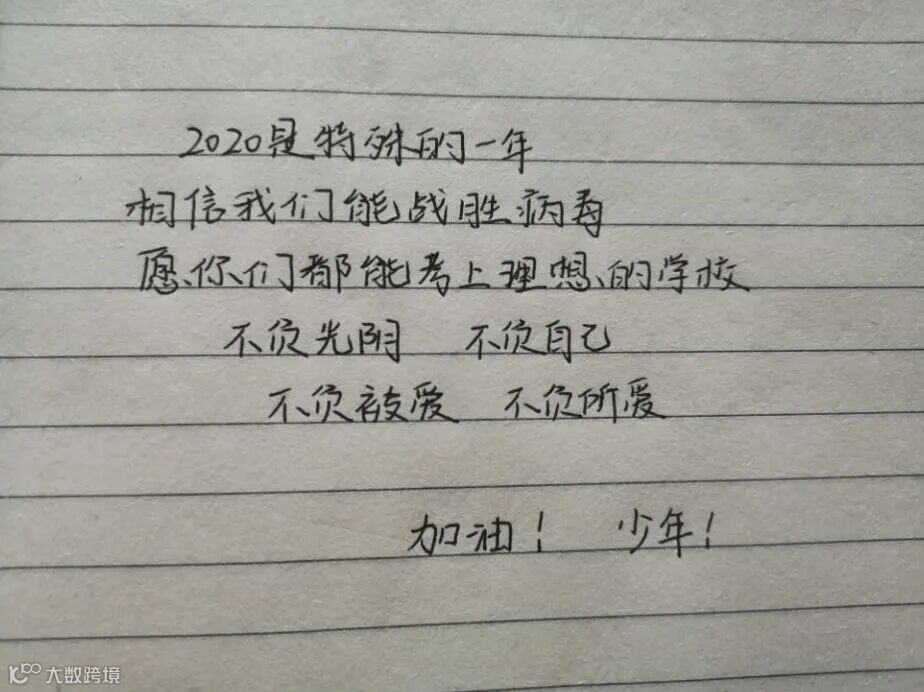 2020是特殊的一年
相信我们能战胜病毒
愿你们都能考上理想的学校
不负光阴 不负自己
不负被爱 不负所爱
加油! 少年!
大数跨境